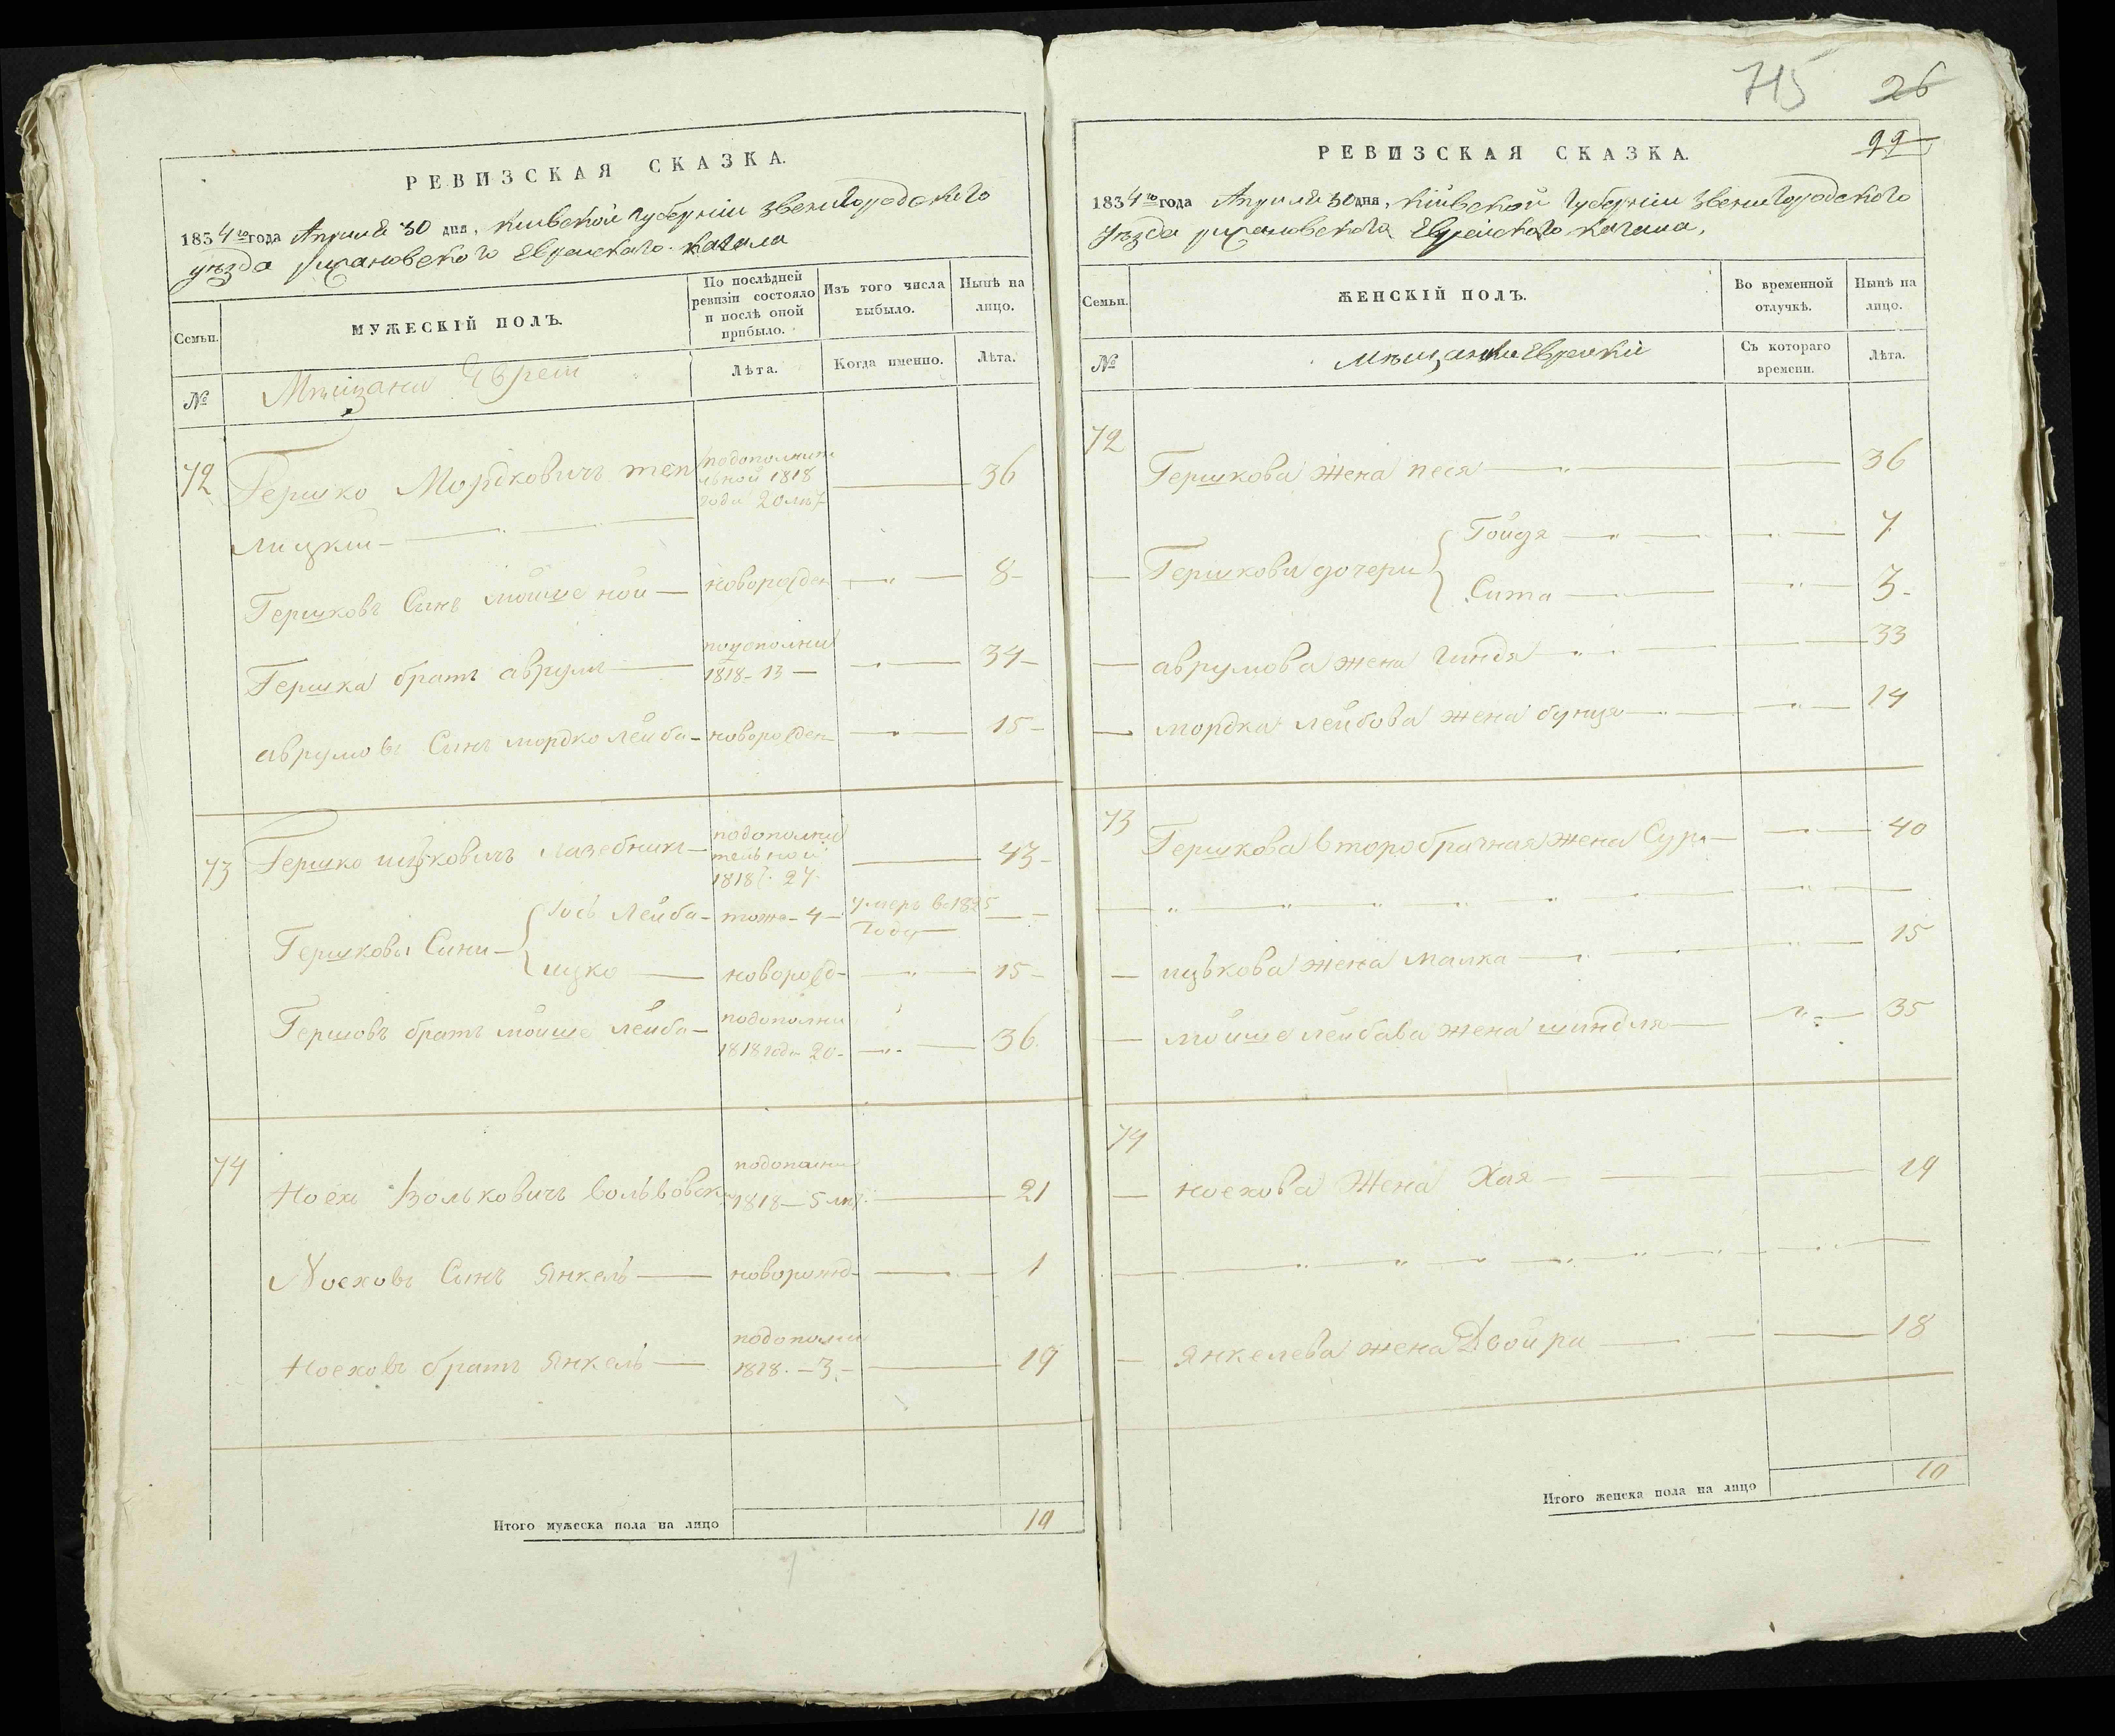 РЕВИЗСКАЯ СКАЗКА.
1834го года Априля 30 дня, Киивской Губерніи Звенигородского
уѣзда рижановского Еврейского кагала
Семьи.
МУЖЕСКІЙ ПОЛЪ.
По послѣдней ревизіи состояло и послѣ оной прибыло.
Изъ того числа выбыло.
Нынѣ на лицо.
№
Мѣщани Евреи
Лѣта.
Когда именно.
Лѣта.
72
Гершко Мордковичъ теп
лицкии
подополнит
льной 1818
года 20 лѣт
36
Гершковъ Синъ мойше ной
новорожден
8
Гершка братъ аврумъ
подополни
1818 - 13
34
аврумовъ Синъ мордко лейба
новорожден
15
73
Гершко ицковичъ лазебникъ
подополни
тельной
1818 г. 27
43
Гершкови Сини
Іось Лейба
тоже 4
умеръ въ 1825
году
ицко
новорожд
15
Гершовъ братъ мойше лейба
подополни
1818 года 20
36
74
Ноех Вольковичъ вольвовск
подополни
1818 - 5 лѣт
21
Ноеховъ Синъ Янкель
новорожд
1
Ноеховъ братъ Янкель
подополни
1818. - 3
19
Итого мужеска пола на лицо
10
715
26
99
РЕВИЗСКАЯ СКАЗКА.
1834го года Априля 30 дня, Кіивской Губерніи Звенигородского
уѣзда рижановского Еврейского кагала,
Семьи.
ЖЕНСКІЙ ПОЛЪ.
Во временной отлучкѣ.
Нынѣ на лицо.
№
Мѣщанки Еврейки
Съ котораго времени.
Лѣта.
72
Гершкова жена песя
36
Гершкови дочери
Гойдя
7
Сита
3
аврумова жена Гиндя
33
мордка лейбова жена бунця
14
73
Гершкова второбрачная жена Сура
40
ицькова жена малка
15
мойше лейбава жена шиндля
35
74
ноехова Жена Хая
19
янкелева жена Двойра
18
Итого женска пола на лицо
10